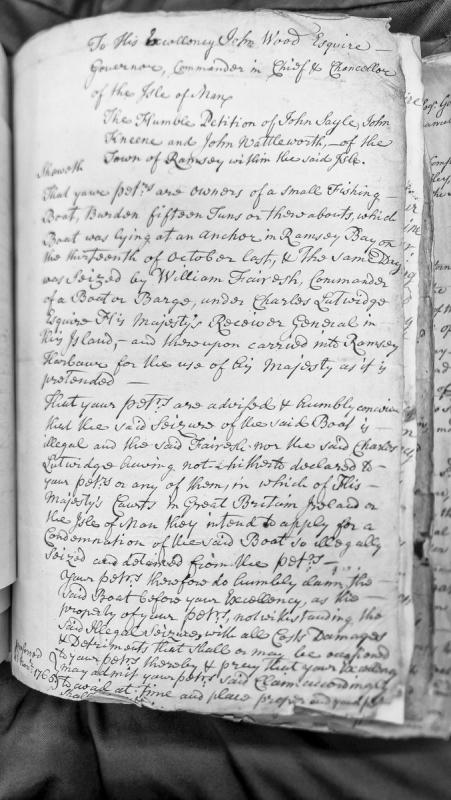 To His Excellency John Wood Esquire —
Governor, Commander in Chief & Chancellor
of the Isle of Man,
The Humble Petition of John Sayle, John
Kneene and John Wattleworth, — of the
Town of Ramsey within the said Isle.
Sheweth
That your petrs. are owners of a small Fishing —
Boat, Burden fifteen Tuns or thereabouts, which
Boat was lying at an Anchor in Ramsey Bay on
the thirteenth of October last, & the same Day
was Seized by William Fairesh, Commander
of a Boat or Barge, under Charles Lutwidge
Esquire His Majesty's Receiver General in
this Island, and thereupon carried into Ramsey
Harbour for the use of his Majesty as it is
pretended —
That your petrs. are advised & humbly conceive
that the said Seizure of the said Boat is —
illegal and the said Fairesh nor the said Charles
Lutwidge having not hitherto declared to —
your petrs. or any of them, in which of His —
Majesty's Courts in Great Britain Ireland or
the Isle of Man they intend to apply for a
Condemnation of the said Boat so illegally
Seized and detained from the petrs. —
Your petrs. therefore do humbly claim, the —
said Boat before your Excellency, as the
property of your petrs. notwithstanding the
said Illegal Seizure, with all Costs Damages
& Detriments that shall or may be occasioned
to your petrs. thereby & pray that your Excellency
may admit your petrs. said Claim accordingly
to avail at time and place proper and your petrs.
shall